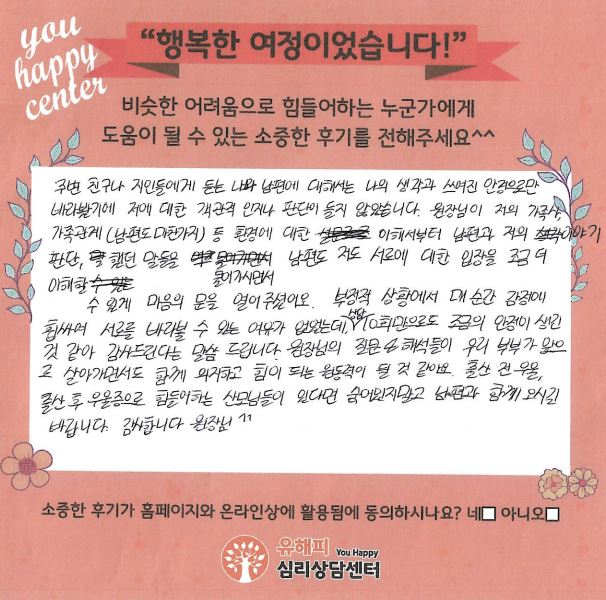 you
happy
center
“행복한 여정이었습니다!”
비슷한 어려움으로 힘들어하는 누군가에게
도움이 될 수 있는 소중한 후기를 전해주세요^^
주변 친구나 지인들에게 듣는 나와 남편에 대해서는 나의 생각과 쓰여진 안경으로만
바라봤기에 저에 대한 객관적 인지나 판단이 들지 않았습니다. 원장님이 저의 가족사,
가족관계 (남편도 마찬가지) 등 환경에 대한 이해서부터 남편과 저의 이야기
판단, 했던 말들을 남편도 저도 서로에 대한 입장을 조금 더
물어가시면서
이해할
수 있게 마음의 문을 열어주셨어요. 부정적 상황에서 매 순간 감정에
휩싸여 서로를 바라볼 수 있는 여유가 없었는데, 상담 10회만으로도 조금의 안정이 생긴
것 같아 감사드린다는 말씀 드립니다. 원장님의 질문 & 해석들이 우리 부부가 앞으
로 살아가면서도 함께 의지하고 힘이 되는 원동력이 될 것 같아요. 출산 전 우울,
출산 후 우울증으로 힘들어하는 산모님들이 있다면 숨어있지말고 남편과 함께 오시길
바랍니다. 감사합니다 원장님 ^^
소중한 후기가 홈페이지와 온라인상에 활용됨에 동의하시나요? 네 아니오
유해피 You Happy
심리상담센터